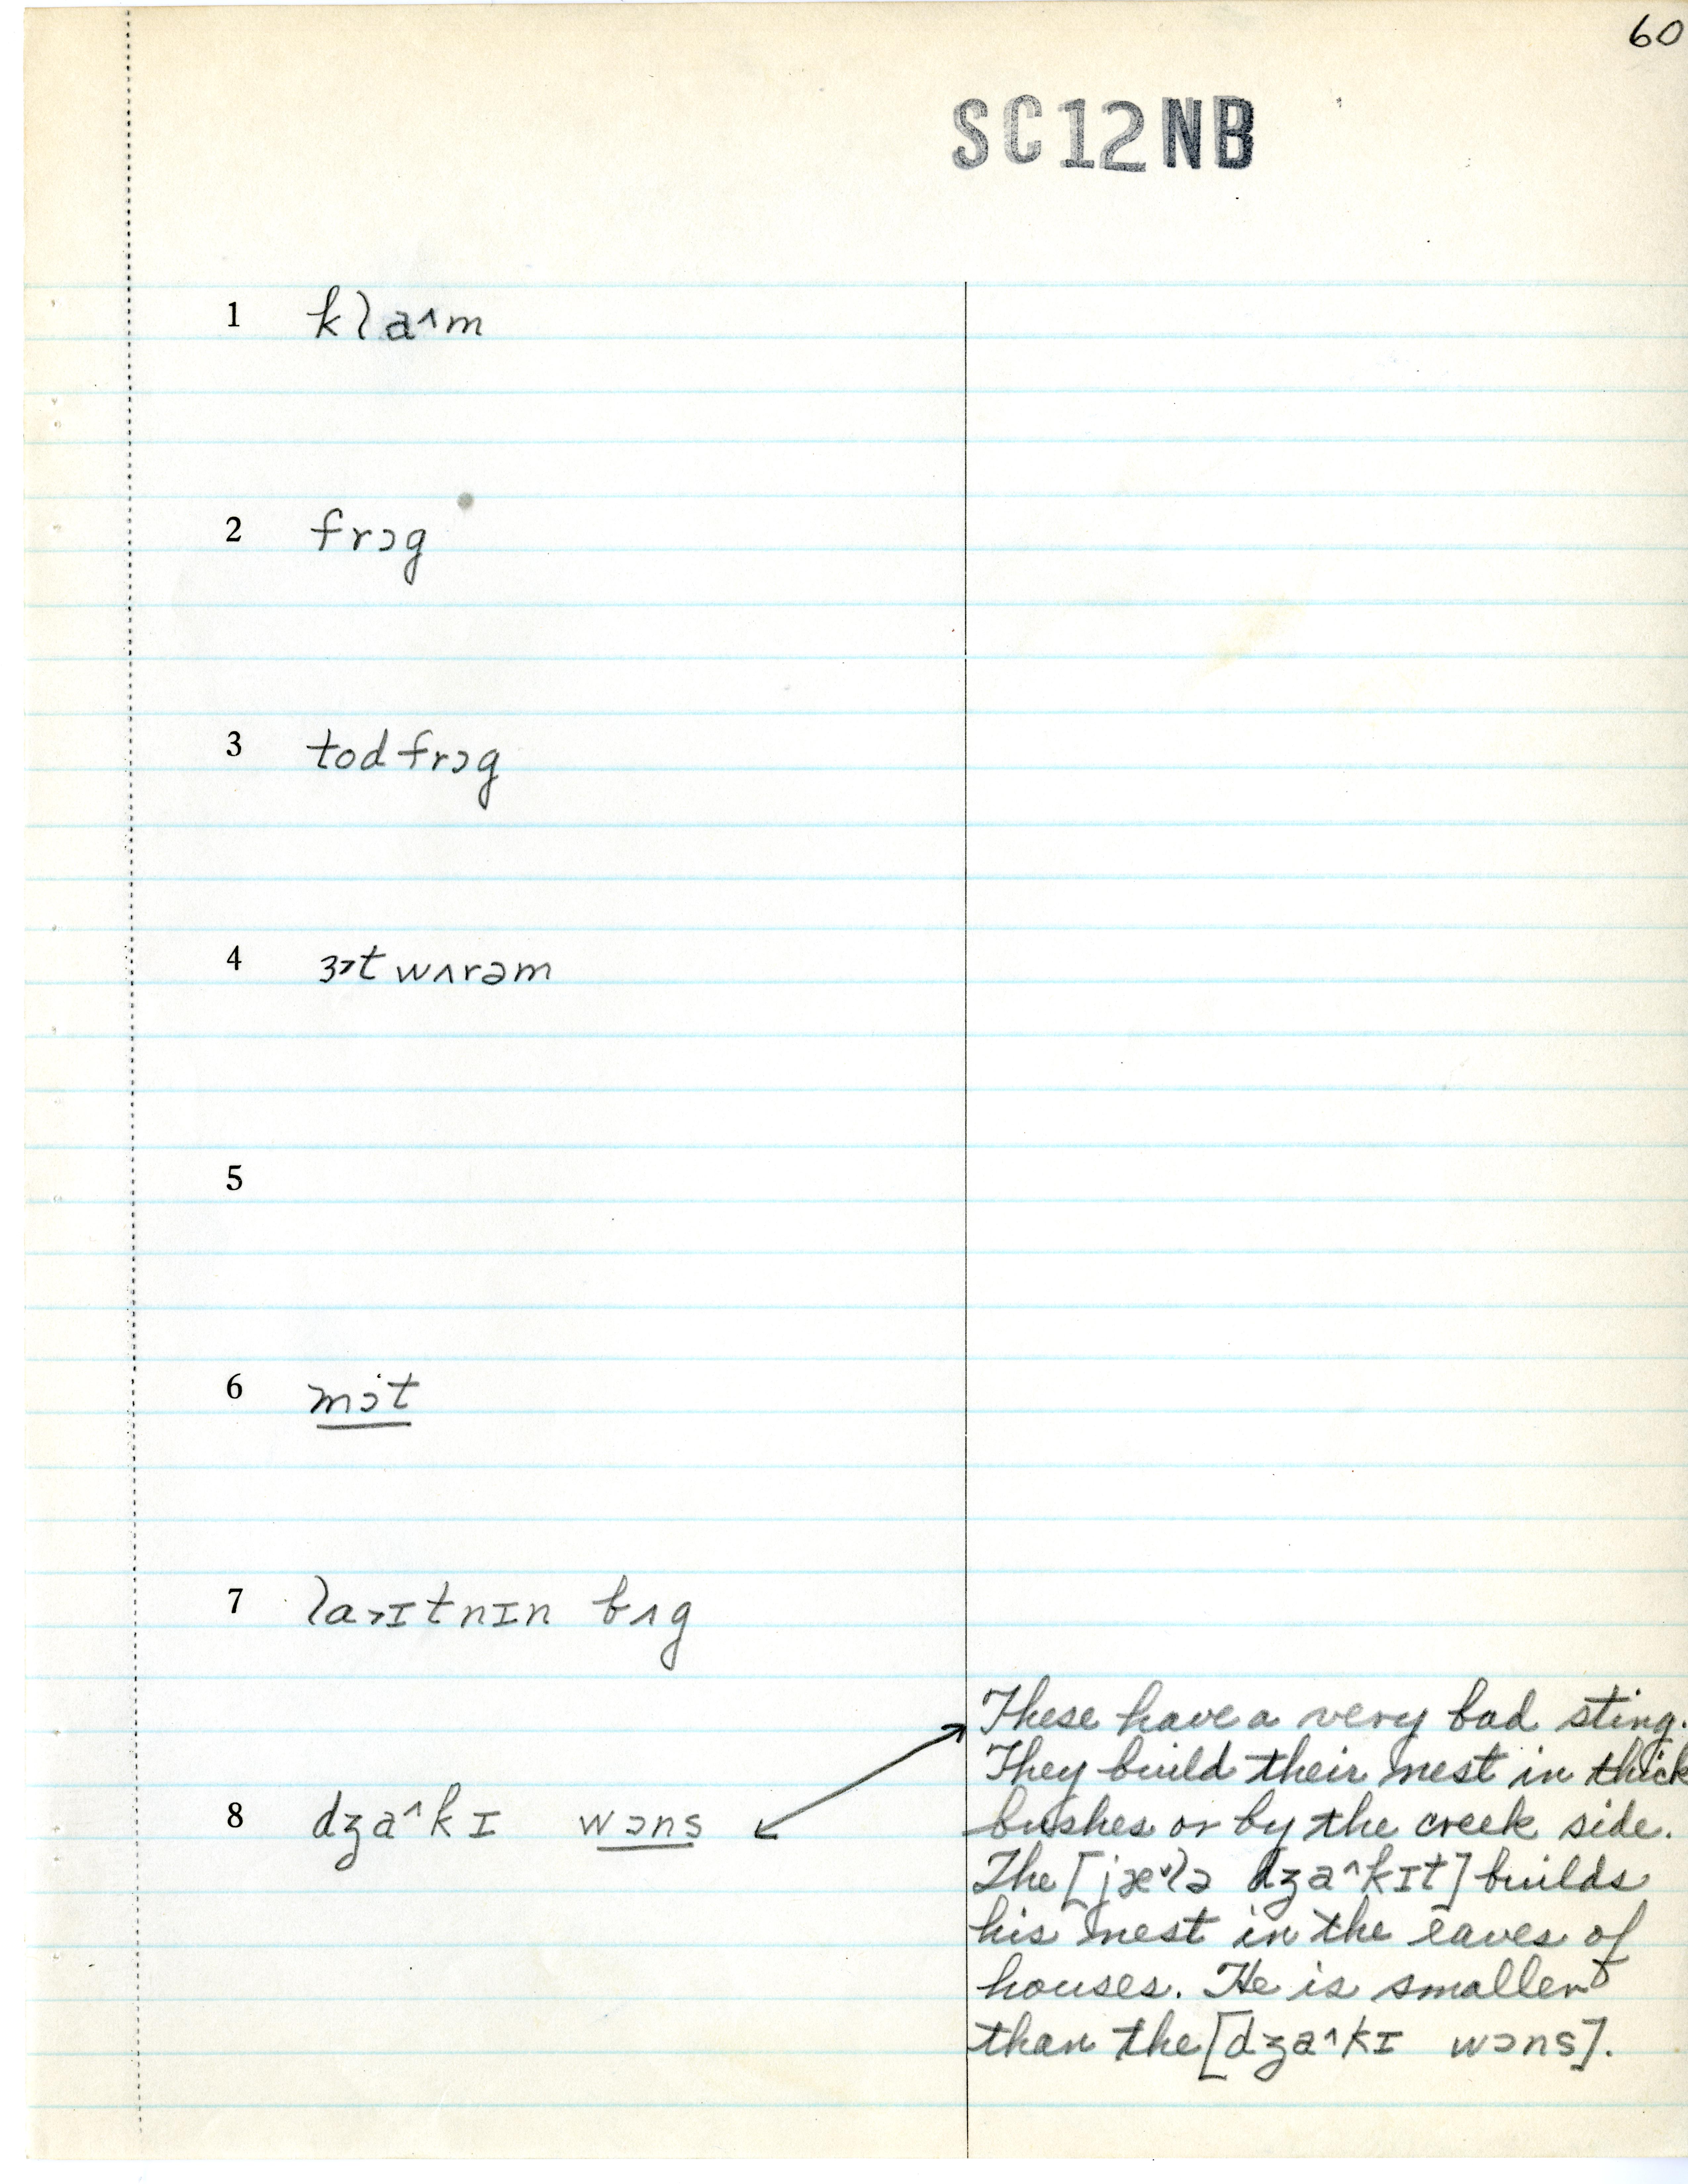 60
SC12NB
1 kɫa^m
2 frɔg
3 tod frɔg
4 ɜ˞t wʌrəm
5
6 mɔ̇t
7 ɫa˃ɪtnɪn bʌg
8 dʒa^kɪ wɔns
These have a very bad sting.
They build their nest in thick
bushes or by the creek side.
The [jæ˅ɫə dʒa^kɪt] builds
his nest in the eaves of
houses. He is smaller
than the [dʒa^kɪ wɔns].